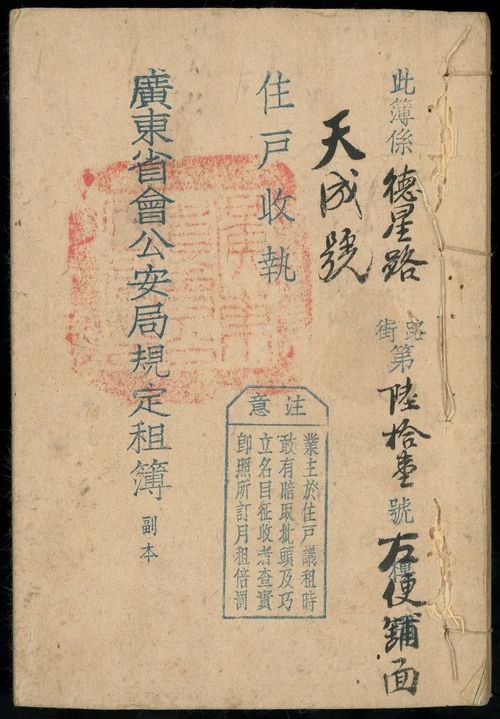 此簿係德星路路街第陸拾壹號左便舖面
天成號
住戶收執
注意
業主於住戶議租時
敢有賠取批頭及巧
立名目征收者查實
即照所訂月租倍罰
廣東省會公安局規定租簿 副本